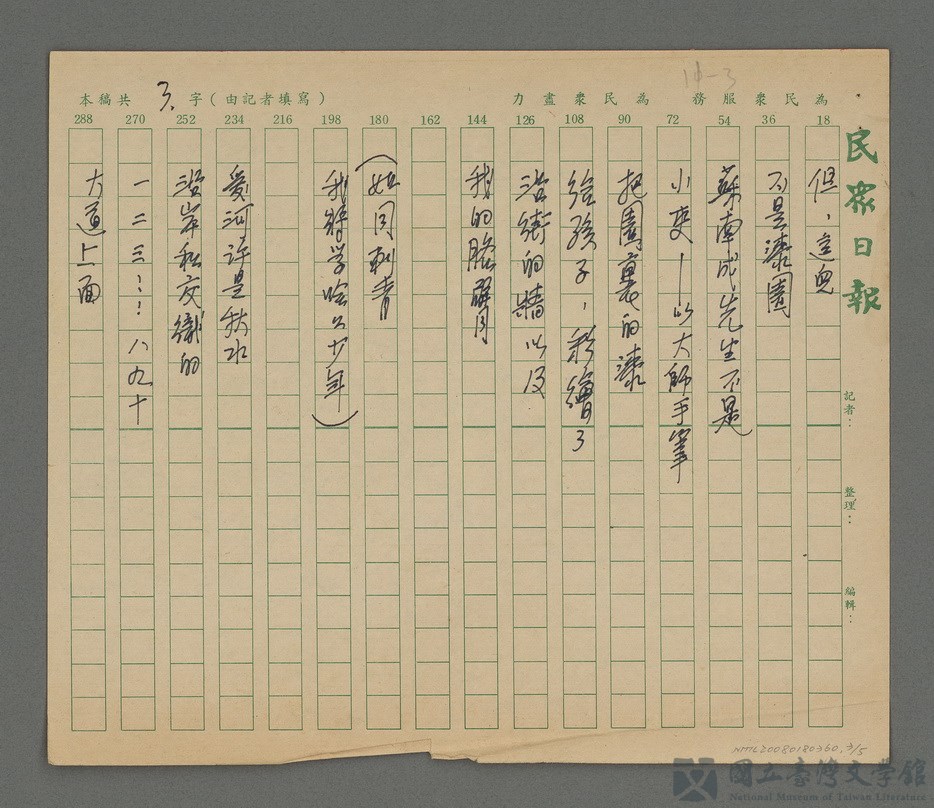 14-3
為民衆服務 為民衆盡力
本稿共 3. 字(由記者填寫)
288 270 252 234 216 198 180 162 144 126 108 90 72 54 36 18
民衆日報
記者：
整理：
編輯：
但，這兒
不是漆園
蘇南成先生不是
小吏—以大師手筆
把園裏的漆
給孩子，彩繪了
沿街的牆以及
我的胳臂
(如同刺青
我 学 少年)
愛河許是秋水
沿岸 交織的
一二三……八九十
大道上面
NMTL20080180360, 3/5
國立臺灣文學館
National Museum of Taiwan Literature